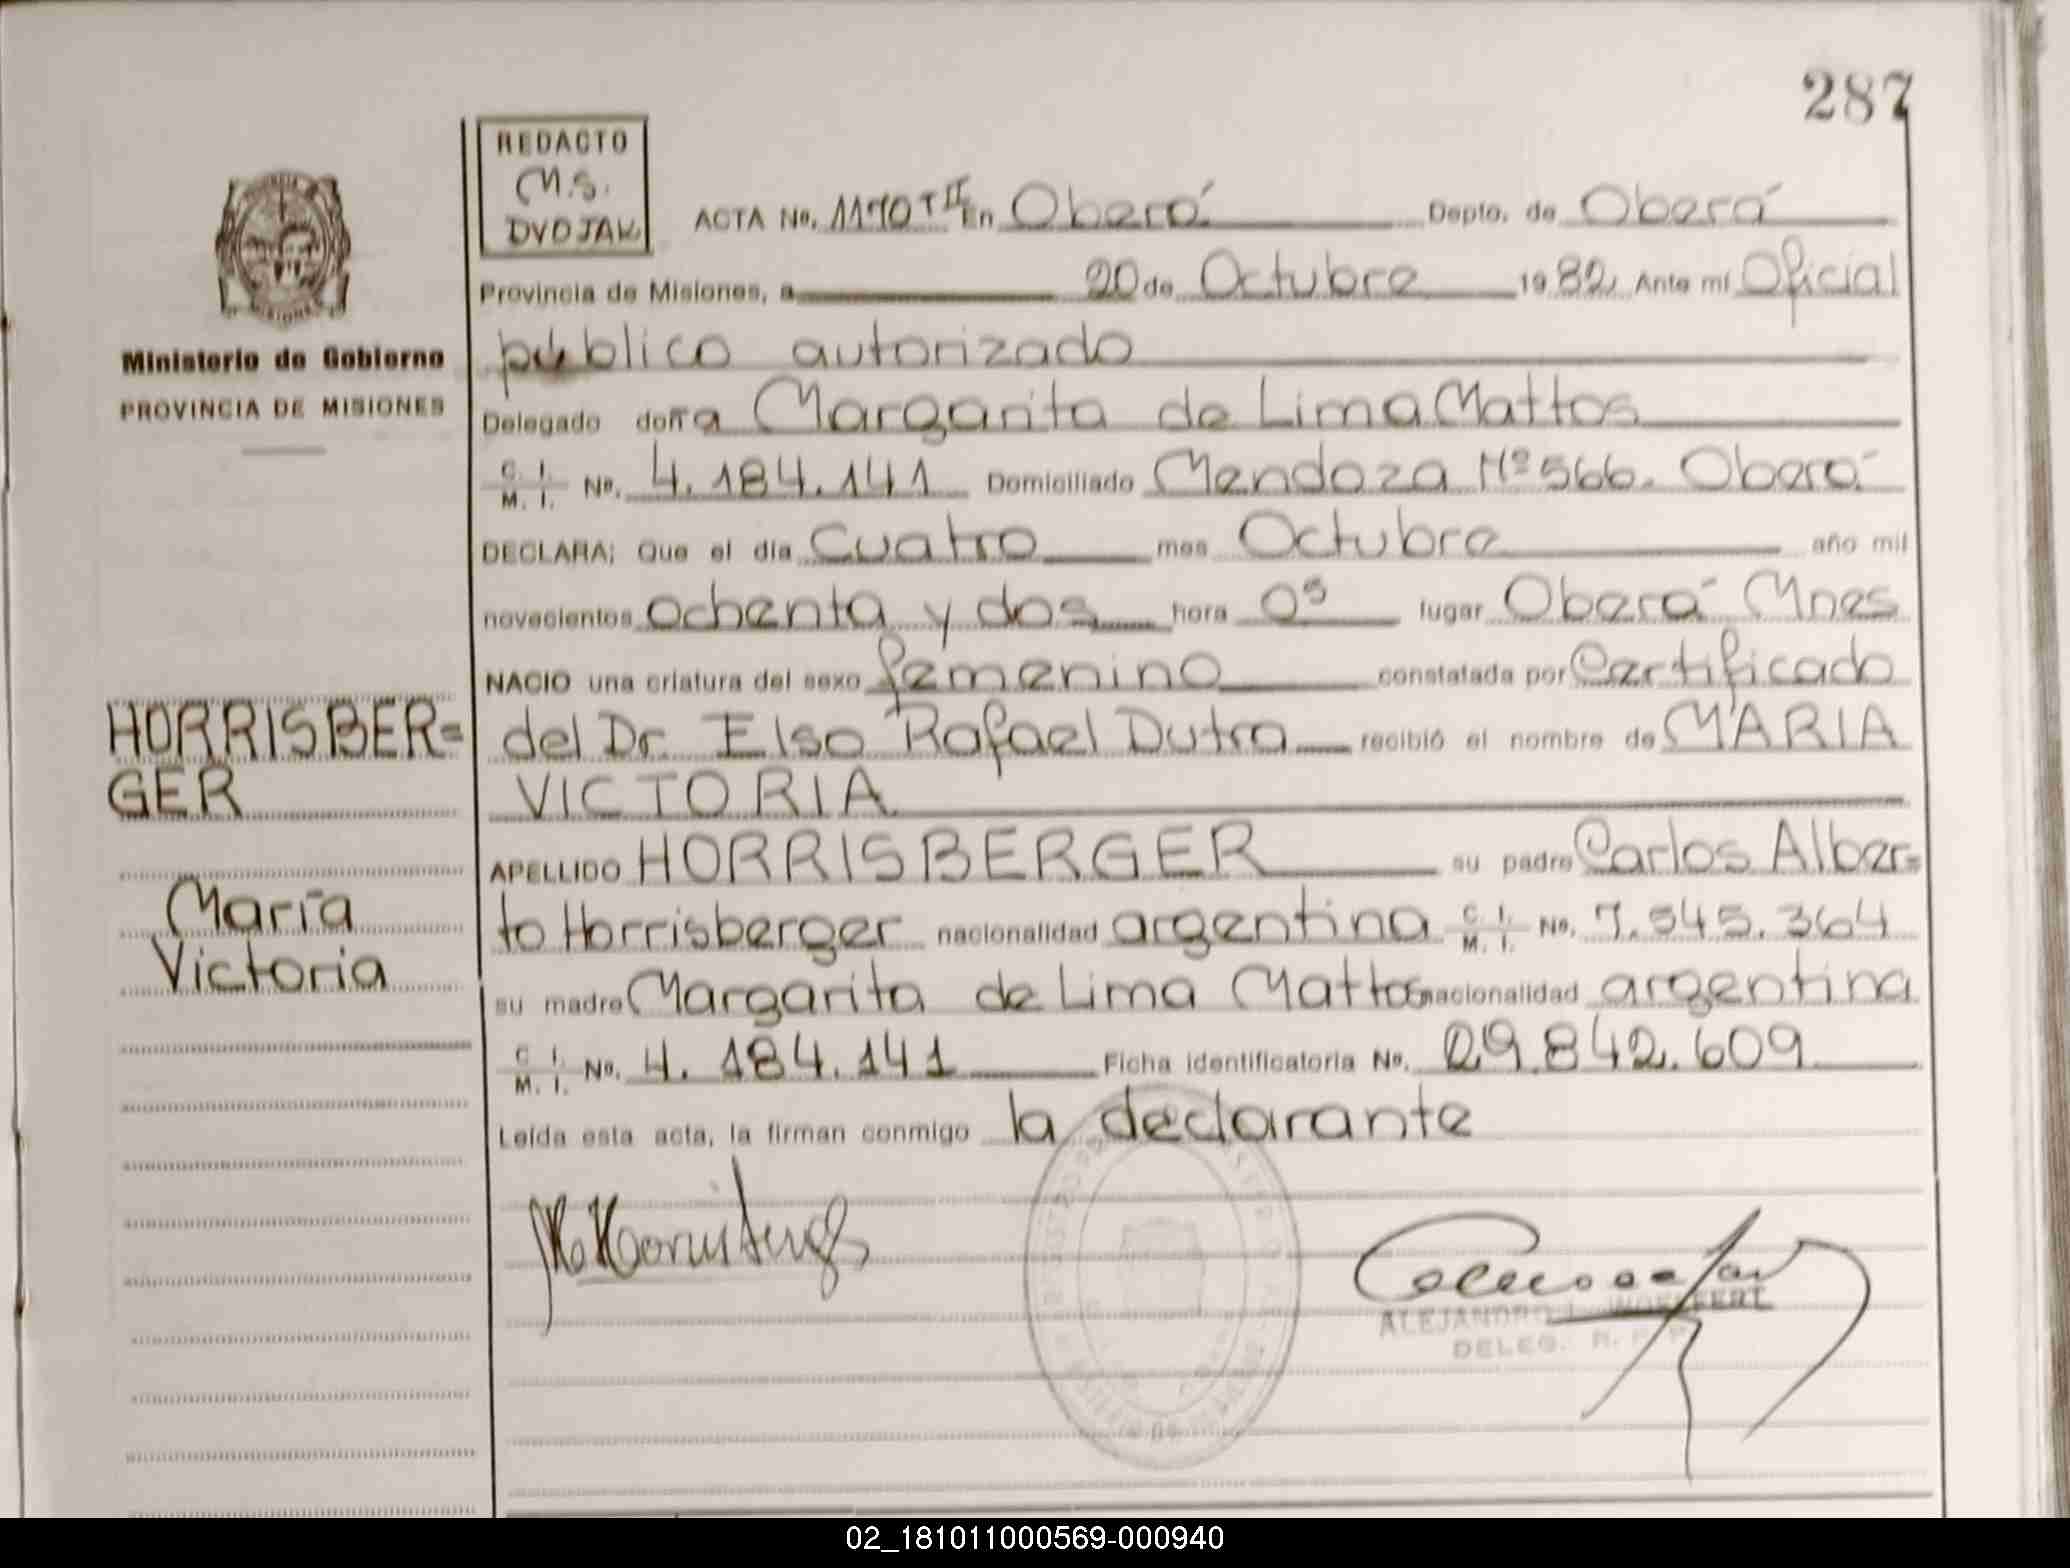 287
REDACTO
M.S.
DVOJAK
ACTA No. 1170 T II En Oberá Depto. de Oberá
Provincia de Misiones, a 20 de Octubre 1982 Ante mí Oficial
público autorizado
Ministerio de Gobierno
PROVINCIA DE MISIONES
Delegado doña Margarita de Lima Mattos
C. I. M. I. No. 4.184.141 Domiciliado Mendoza Nº 566. Oberá
DECLARA; Que el día Cuatro mes Octubre año mil
novecientos ochenta y dos hora 0s lugar Oberá Mnes
NACIO una criatura del sexo femenino constatada por Certificado
HORRISBER=
GER
María
Victoria
del Dr. Elso Rafael Dutra recibió el nombre de MARIA
VICTORIA
APELLIDO HORRISBERGER su padre Carlos Alber=
to Horrisberger nacionalidad argentina C. I. M. I. No. 7.545.364
su madre Margarita de Lima Mattos nacionalidad argentina
C. I. M. I. No. 4.184.141 Ficha identificatoria No. 29.842.609
Leída esta acta, la firman conmigo la declarante
ALEJANDRO
DELEG. R.
02_181011000569-000940